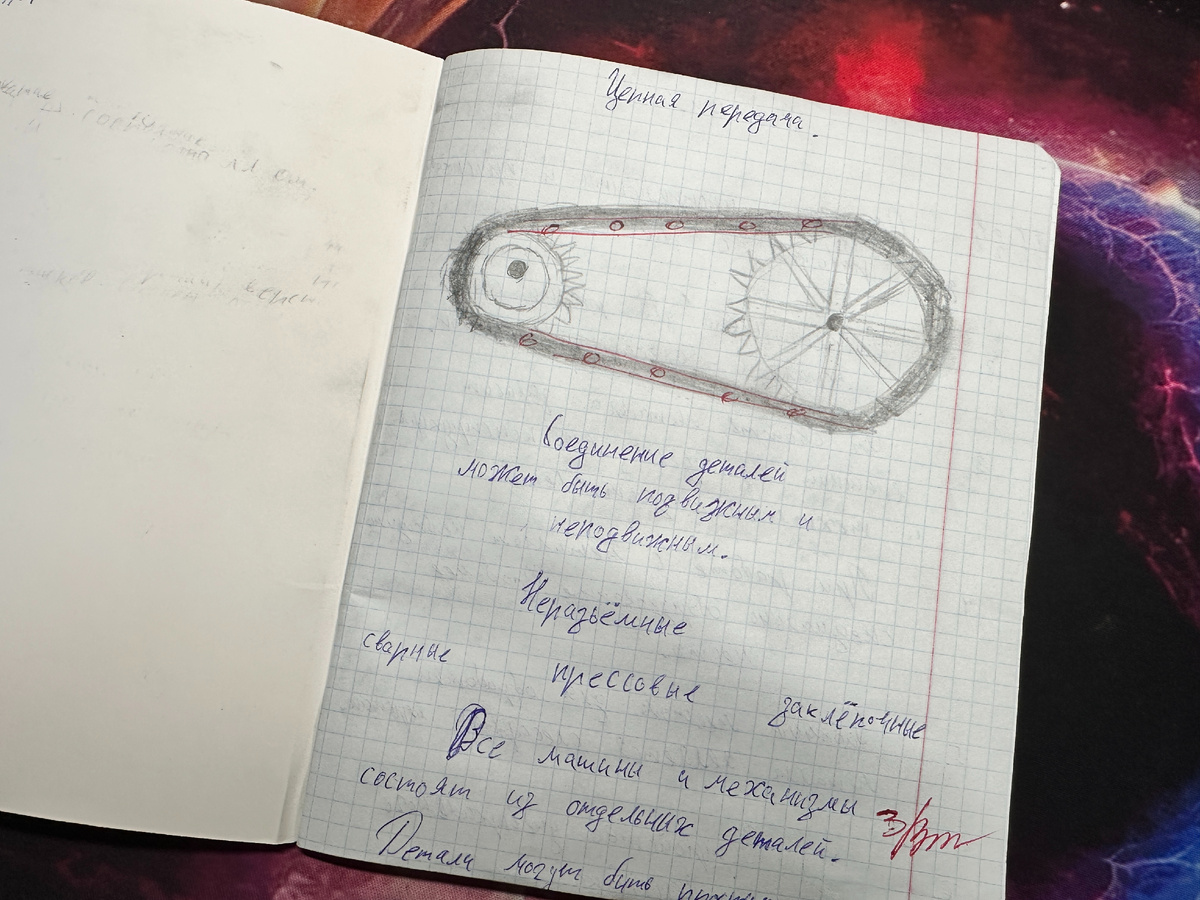 Цепная передача.
Соединение деталей
может быть подвижным и
неподвижным.
Неразъёмные
сварные прессовые заклёпочные
Все машины и механизмы
состоят из отдельных деталей.
Детали могут быть